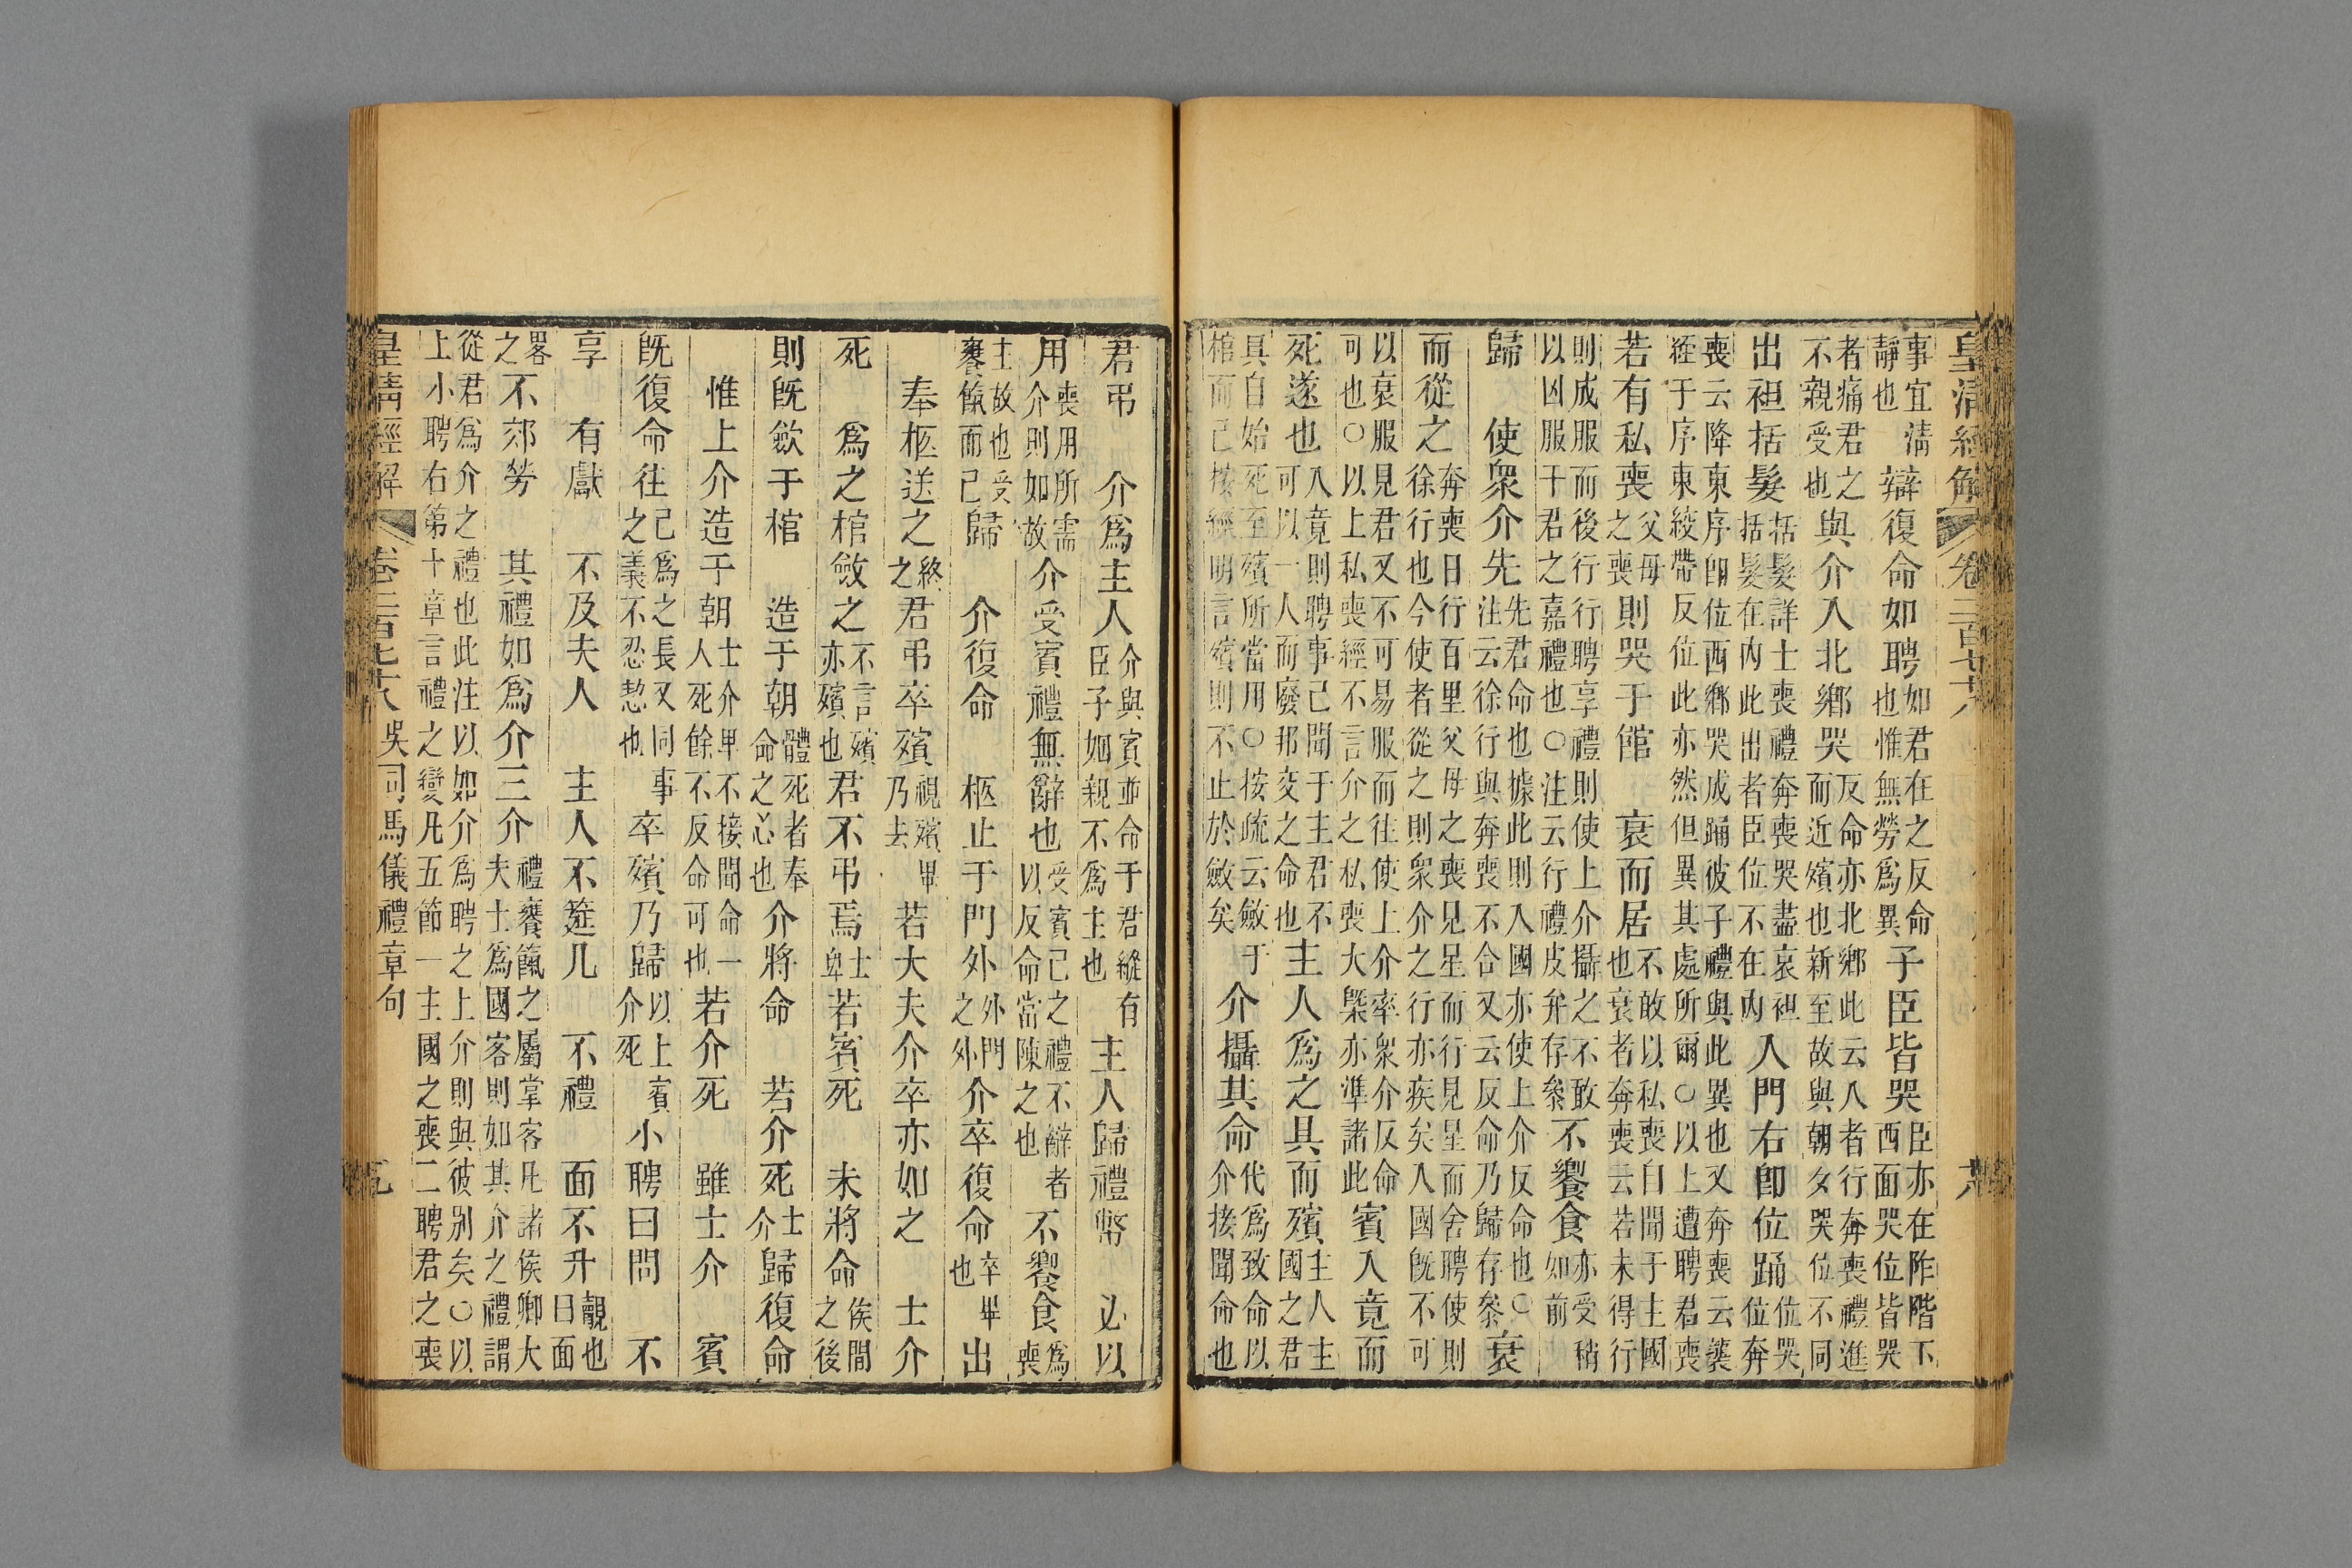 皇清經解 卷二百七十八
事宜清
靜也
辯復命如聘
如君在之反命
也惟無勞爲異
子臣皆哭
臣亦在阼階下
西面哭位皆哭
者痛君之
不親受也
與介入北鄉哭
反命亦北鄉此云入者行奔喪禮進
而近殯也新至故與朝夕哭位不同
出袒括髮
括髮詳士喪禮奔喪哭盡哀袒
括髮在內此出者臣位不在內
入門右卽位踊
位哭
位奔
喪云降東序卽位西鄉哭成踊彼子禮與此異也又奔喪云襲
絰于序東絞帶反位此亦然但異其處所爾○以上遭聘君喪
若有私喪
父母
之喪
則哭于館 衰而居
不敢以私喪自聞于主國
也衰者奔喪云若未得行
則成服而後行行聘享禮則使上介攝之不敢
以凶服干君之嘉禮也○注云行禮皮弁存叅
不饗食
亦受稍
如前
歸 使衆介先
先君命也據此則入國亦使上介反命也○
注云徐行與奔喪不合又云反命乃歸存叅
衰
而從之
奔喪日行百里父母之喪見星而行見星而舍聘使則
徐行也今使者從之則衆介之行亦疾矣入國旣不可
以衰服見君又不可易服而往使上介率衆介反命
可也○以上私喪經不言介之私喪大槩亦準諸此
賓入竟而
死遂也
入竟則聘事已聞于主君不
可以一人而廢邦交之命也
主人爲之具而殯
主人主
國之君
具自始死至殯所當用○按疏云斂于
棺而已按經明言殯則不止於斂矣
介攝其命
代爲致命以
介接聞命也
君弔 介爲主人
介與賓並命于君縱有
臣子姻親不爲主也
主人歸禮幣 必以
用
喪用所需
介則如故
介受賓禮無辭也
受賓己之禮不辭者
以反命當陳之也
不饗食
爲
喪
主故也受
饔餼而已
歸 介復命 柩止于門外
外門
之外
介卒復命
卒畢
也
出
奉柩送之
終
之
君弔卒殯
視殯畢
乃去
若大夫介卒亦如之 士介
死 爲之棺斂之
不言殯
亦殯也
君不弔焉
士
卑
若賓死 未將命
俟間
之後
則旣斂于棺 造于朝
體死者奉
命之心也
介將命 若介死
士
介
歸復命
惟上介造于朝
士介卑不接聞命一
人死餘不反命可也
若介死 雖士介 賓
旣復命往
已爲之長又同事
之義不忍恝也
卒殯乃歸
以上賓
介死
小聘曰問 不
享 有獻 不及夫人 主人不筵几 不禮 面不升
覿也
曰面
畧
之
不郊勞 其禮如爲介三介
禮饔餼之屬掌客凡諸侯卿大
夫士爲國客則如其介之禮謂
從君爲介之禮也此注以如介爲聘之上介則與彼別矣○以
上小聘右第十章言禮之變凡五節一主國之喪二聘君之喪
皇清經解 卷二百七十八 吳司馬儀禮章句